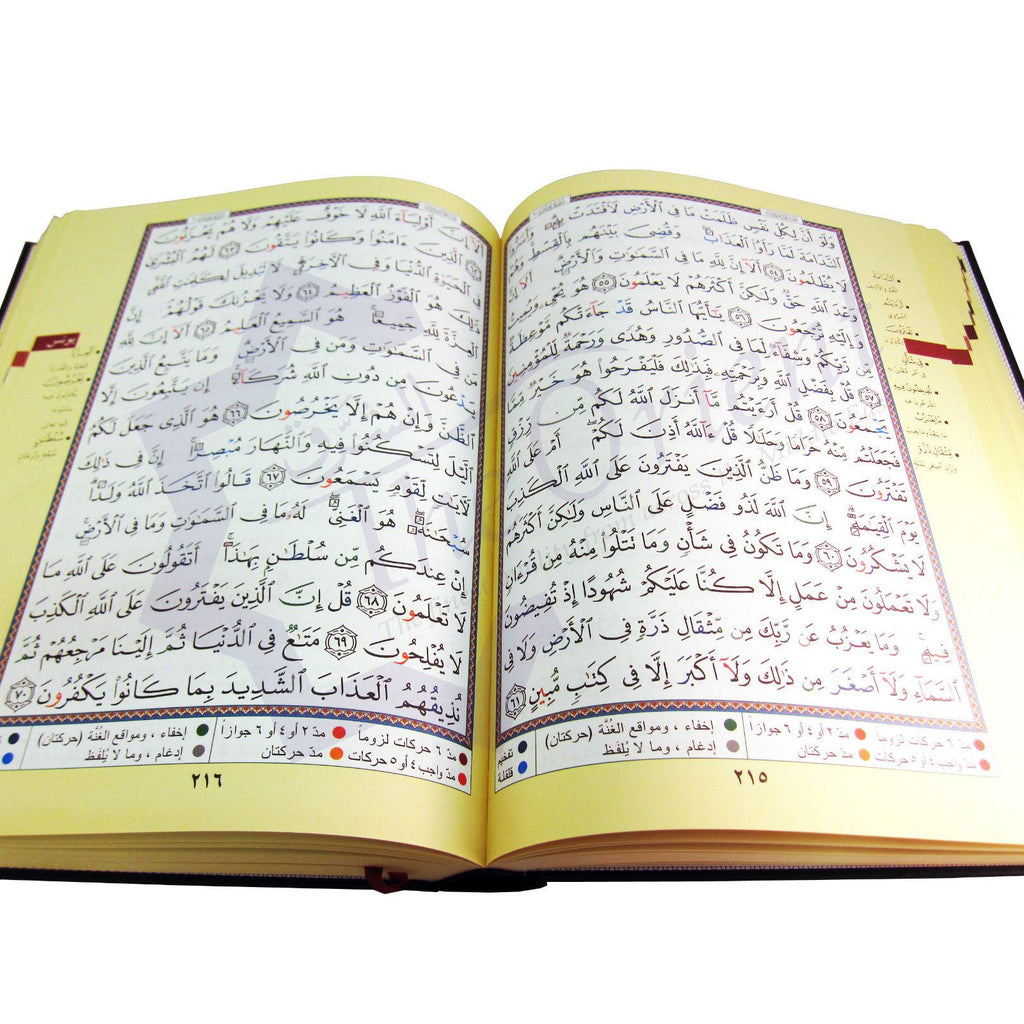 وَلَوْ أَنَّ لِكُلِّ نَفْسٍ ظَلَمَتْ مَا فِى ٱلْأَرْضِ لَٱفْتَدَتْ بِهِۦ وَأَسَرُّوا۟
ٱلنَّدَامَةَ لَمَّا رَأَوُا۟ ٱلْعَذَابَ وَقُضِىَ بَيْنَهُم بِٱلْقِسْطِ وَهُمْ
لَا يُظْلَمُونَ ٥٤ أَلَآ إِنَّ لِلَّهِ مَا فِى ٱلسَّمَٰوَٰتِ وَٱلْأَرْضِ أَلَآ إِنَّ
وَعْدَ ٱللَّهِ حَقٌّ وَلَٰكِنَّ أَكْثَرَهُمْ لَا يَعْلَمُونَ ٥٥ هُوَ يُحْىِۦ وَيُمِيتُ
وَإِلَيْهِ تُرْجَعُونَ ٥٦ يَٰٓأَيُّهَا ٱلنَّاسُ قَدْ جَآءَتْكُم مَّوْعِظَةٌ
مِّن رَّبِّكُمْ وَشِفَآءٌ لِّمَا فِى ٱلصُّدُورِ وَهُدًى وَرَحْمَةٌ لِّلْمُؤْمِنِينَ
٥٧ قُلْ بِفَضْلِ ٱللَّهِ وَبِرَحْمَتِهِۦ فَبِذَٰلِكَ فَلْيَفْرَحُوا۟ هُوَ خَيْرٌ مِّمَّا
يَجْمَعُونَ ٥٨ قُلْ أَرَءَيْتُم مَّآ أَنزَلَ ٱللَّهُ لَكُم مِّن رِّزْقٍ
فَجَعَلْتُم مِّنْهُ حَرَامًا وَحَلَٰلًا قُلْ ءَآللَّهُ أَذِنَ لَكُمْ أَمْ عَلَى ٱللَّهِ
تَفْتَرُونَ ٥٩ وَمَا ظَنُّ ٱلَّذِينَ يَفْتَرُونَ عَلَى ٱللَّهِ ٱلْكَذِبَ
يَوْمَ ٱلْقِيَٰمَةِ إِنَّ ٱللَّهَ لَذُو فَضْلٍ عَلَى ٱلنَّاسِ وَلَٰكِنَّ أَكْثَرَهُمْ
لَا يَشْكُرُونَ ٦٠ وَمَا تَكُونُ فِى شَأْنٍ وَمَا تَتْلُوا۟ مِنْهُ مِن قُرْءَانٍ
وَلَا تَعْمَلُونَ مِنْ عَمَلٍ إِلَّا كُنَّا عَلَيْكُمْ شُهُودًا إِذْ تُفِيضُونَ
فِيهِ وَمَا يَعْزُبُ عَن رَّبِّكَ مِن مِّثْقَالِ ذَرَّةٍ فِى ٱلْأَرْضِ وَلَا فِى
ٱلسَّمَآءِ وَلَآ أَصْغَرَ مِن ذَٰلِكَ وَلَآ أَكْبَرَ إِلَّا فِى كِتَٰبٍ مُّبِينٍ ٦١
مدّ ٦ حركات لزوماً مدّ ٢ أو ٤ أو ٦ جوازاً إخفاء ، ومواقع الغُنَّة (حركتان) تفخيم
مدّ واجب ٤ أو ٥ حركات مدّ حركتان إدغام ، وما لا يُلفظ قلقلة
٢١٥
أَلَآ إِنَّ أَوْلِيَآءَ ٱللَّهِ لَا خَوْفٌ عَلَيْهِمْ وَلَا هُمْ يَحْزَنُونَ
٦٢ ٱلَّذِينَ ءَامَنُوا۟ وَكَانُوا۟ يَتَّقُونَ ٦٣ لَهُمُ ٱلْبُشْرَىٰ
فِى ٱلْحَيَوٰةِ ٱلدُّنْيَا وَفِى ٱلْءَاخِرَةِ لَا تَبْدِيلَ لِكَلِمَٰتِ ٱللَّهِ
ذَٰلِكَ هُوَ ٱلْفَوْزُ ٱلْعَظِيمُ ٦٤ وَلَا يَحْزُنكَ قَوْلُهُمْ إِنَّ
ٱلْعِزَّةَ لِلَّهِ جَمِيعًا هُوَ ٱلسَّمِيعُ ٱلْعَلِيمُ ٦٥ أَلَآ إِنَّ لِلَّهِ
مَن فِى ٱلسَّمَٰوَٰتِ وَمَن فِى ٱلْأَرْضِ وَمَا يَتَّبِعُ ٱلَّذِينَ
يَدْعُونَ مِن دُونِ ٱللَّهِ شُرَكَآءَ إِن يَتَّبِعُونَ إِلَّا
ٱلظَّنَّ وَإِنْ هُمْ إِلَّا يَخْرُصُونَ ٦٦ هُوَ ٱلَّذِى جَعَلَ لَكُمُ
ٱلَّيْلَ لِتَسْكُنُوا۟ فِيهِ وَٱلنَّهَارَ مُبْصِرًا إِنَّ فِى ذَٰلِكَ
لَءَايَٰتٍ لِّقَوْمٍ يَسْمَعُونَ ٦٧ قَالُوا۟ ٱتَّخَذَ ٱللَّهُ وَلَدًا
سُبْحَٰنَهُۥ هُوَ ٱلْغَنِىُّ لَهُۥ مَا فِى ٱلسَّمَٰوَٰتِ وَمَا فِى ٱلْأَرْضِ
إِنْ عِندَكُم مِّن سُلْطَٰنٍۭ بِهَٰذَآ أَتَقُولُونَ عَلَى ٱللَّهِ مَا
لَا تَعْلَمُونَ ٦٨ قُلْ إِنَّ ٱلَّذِينَ يَفْتَرُونَ عَلَى ٱللَّهِ ٱلْكَذِبَ
لَا يُفْلِحُونَ ٦٩ مَتَٰعٌ فِى ٱلدُّنْيَا ثُمَّ إِلَيْنَا مَرْجِعُهُمْ ثُمَّ
نُذِيقُهُمُ ٱلْعَذَابَ ٱلشَّدِيدَ بِمَا كَانُوا۟ يَكْفُرُونَ ٧٠
يونس
مدّ ٦ حركات لزوماً مدّ ٢ أو ٤ أو ٦ جوازاً إخفاء ، ومواقع الغُنَّة (حركتان)
مدّ واجب ٤ أو ٥ حركات مدّ حركتان إدغام ، وما لا يُلفظ
٢١٦